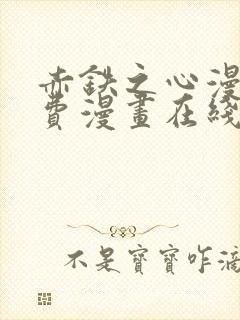 赤鉄之心漫
費漫畫在綫
不是寶寶咋滴